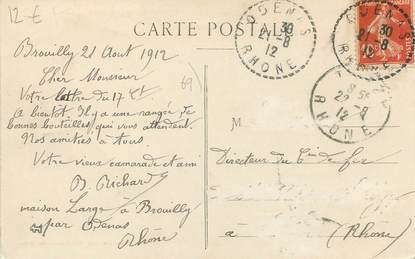 12-€
CARTE POSTALE
ODENAS
30
21-8
12
RHONE
ODENAS
30
21-8
12
RHONE
22-8
12
RHONE
Brouilly 21 Aout 1912
Cher Monsieur
Votre lettre du 17 Ct
A bientot. Il y a une rangée de
bonnes bouteilles qui vous attendent.
Nos amitiés à tous.
Votre vieux camarade et ami
B. Richard
maison Large à Brouilly
par Odenas
Rhône
69
M
Directeur du de fer
à
(Rhône)